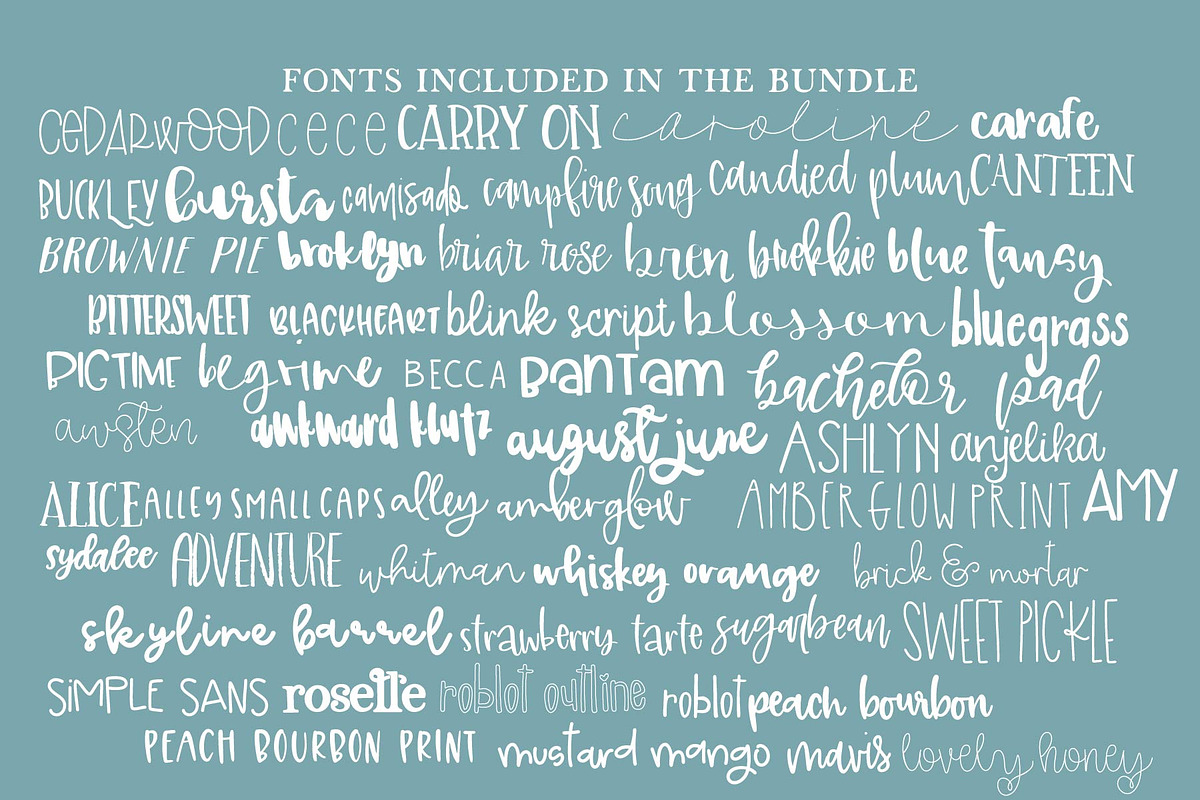 FONTS INCLUDED IN THE BUNDLE
CeDARWOOD cece CARRY ON caroline carafe
BUCKLEY bursta camisado campfire song candied plum CANTEEN
BROWNIE PIE broklyn briar rose bren brekkie blue tansy
BITTERSWEET BLACKHEART blink script blossom bluegrass
BIGTIME begrime BECCA BanTam bachelor pad
awsten awkward klutz august june ASHLYN anjelika
ALICE ALLEY SMALL CAPS alley amberglow AMBERGLOW PRINT AMY
sydalee ADVENTURE whitman whiskey orange brick & mortar
skyline barrel strawberry tarte sugarbean SWEET PICKLE
SiMPLE SANS roselle roblot outline roblot peach bourbon
PEACH BOURBON PRINT mustard mango mavis lovely honey